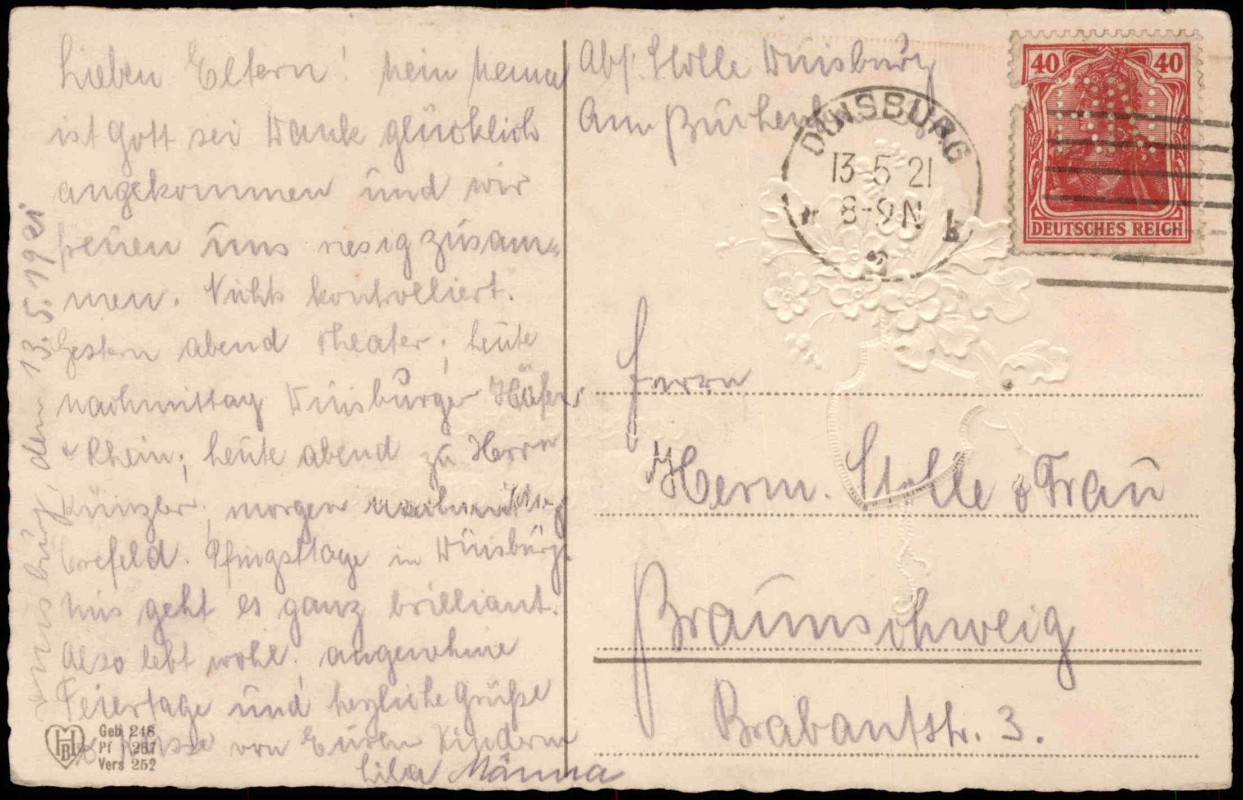 Duisburg, den 13. 5. 1921
Lieben Eltern! Mein
ist Gott sei Dank glücklich
angekommen und wir
freuen uns riesig zusam-
men. Nichts kontrolliert.
Gestern abend Theater; heute
nachmittag Duisburger Häfen,
& Rhein; heute abend zu Herrn
Künzler, morgen
Crefeld. Pfingsttage in Duisburg.
Uns geht es ganz brilliant.
Also lebt wohl, angenehme
Feiertage und herzliche Grüße
& Küsse von Euren Kindern
Geb 248
Pf 267
Vers 252
HB
Abs. Stolle Duisburg
Am
DUISBURG
13-5-21
8-9N
* k
2
40 40
DEUTSCHES REICH
Herrn
Herm. Stolle & Frau
Braunschweig
Brabantstr. 3.